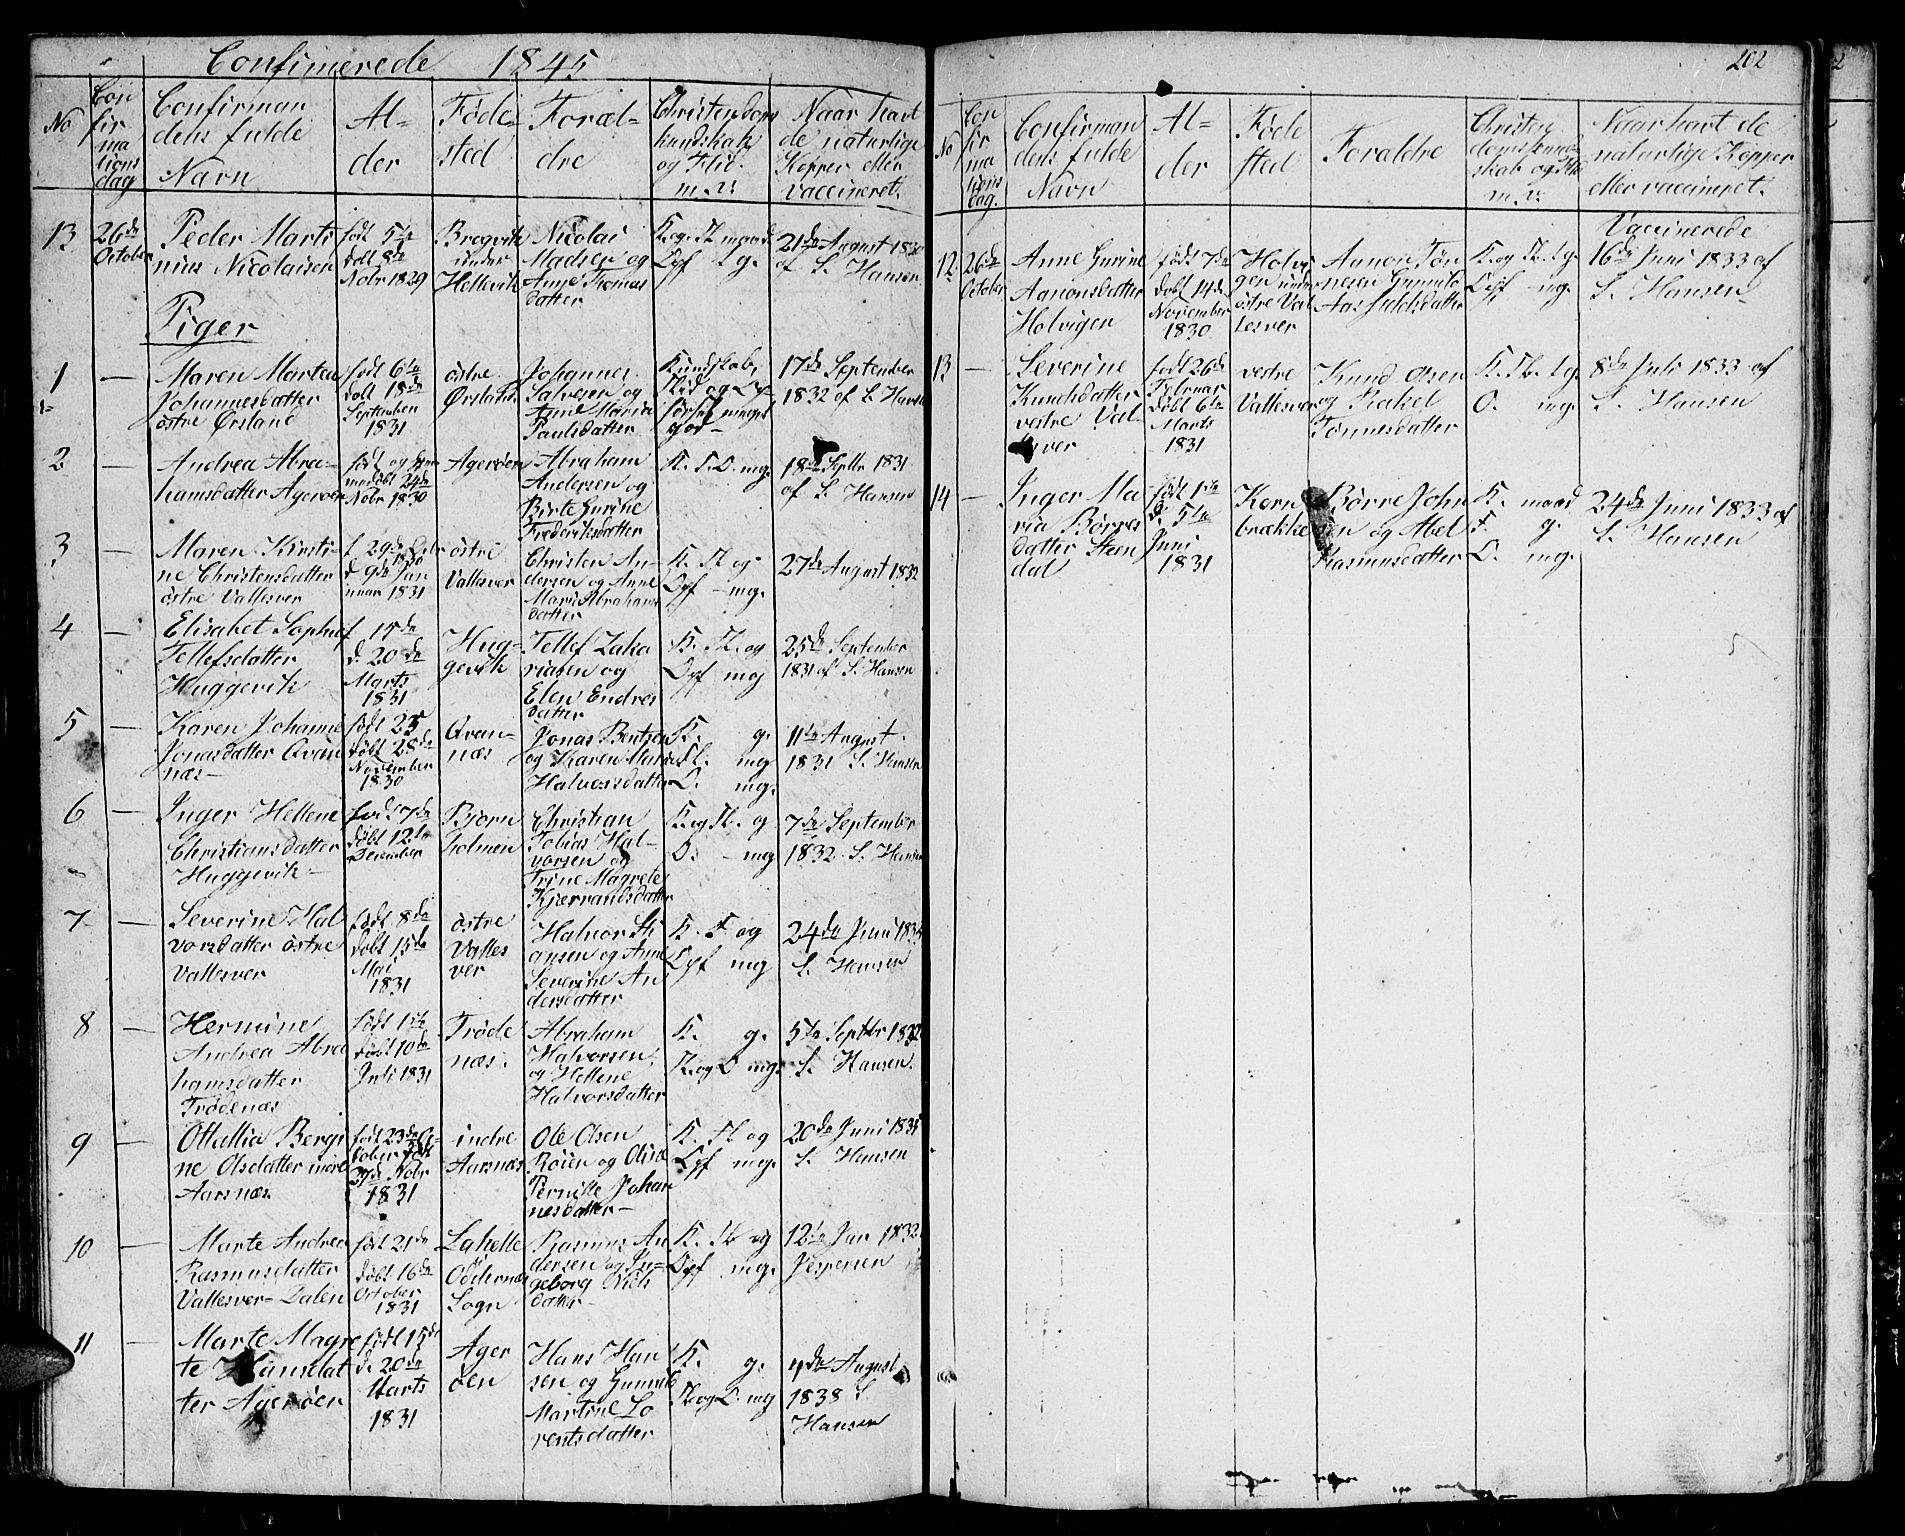 Confimerede 1845
No
Con
fir
ma
tions
dag
Confirman
dens fulde
Navn
Al-
der
Føde-
sted
Foræl-
dre
Christendoms
kundskab
og Flit
m.v.
Naar havt
de naturlige
Kopper eller
vaccineret.
13
26de
October
Peder Marti
nius Nicolaisen
født 5te
døbt 8de
Nobr 1829
Bregvik
under
Hellevik
Nicolai
Madsen og
Anne Tomas
datter
K. og Fl. maade
Opf tg.
21de August 1830
af S. Hansen
Piger
1
—
Maren Marten
Johannesdatter
østre Ørsland
født 6te
døbt 18de
September
1831
østre
Ørsland
Johannes
Salvesen og
Anne Maria
Paulsdatter
Kundskab,
Flid og Opf
førsel meget
god—
17de September
1832 af S. Hansen
2
—
Andrea Abra-
hamsdatter Agerøen
født og hjem
medøbt 24de
Nobr 1830
Agerøen
Abraham
Andersen og
Birte Gurine
Frederiksdatter
K. F. O. mg.
18de Septbr 1831
af S. Hansen
3
—
Maren Kirsti-
ne Christensdatter
østre Vallesver
f. 29de
1830
d. 9de Jan
nuar 1831
østre
Vallesver
Christen An-
dersen og Anne
Marie Abrahams
datter
K. Fl. og
Opf — mg.
27de August 1832
4
—
Elisabet Sophie
Tellefsdatter
Huggevik
f 15de
d. 20de
Marts
1831
Hug-
gevik
Tellef Zaka
riasen og
Elen Endres
datter
K. Fl. og
Opf mg
25de September
1831 af S. Hansen
5
—
Karen Johanne
Jonasdatter Qvan
næs—
født 25
døbt 28de
November
1830
Qvan-
næs
Jonas Bentsen
og Karen Maria
Halvorsdatter
K. g.
Fl. mg
O. mg.
11te August
1831 S. Hansen
6
—
Inger Hellene
Christiansdatter
Huggevik—
født 7de
døbt 12te
December
Bjørn
holmen
Christian
Tobias Hal-
vorsen og
Trine Magrete
Kjerrandsdatter
K. og Fl. g
O. — mg
7de September
1832 S. Hansen
7
—
Severine Hal
vorsdatter østre
Vallesver
født 8de
døbt 15de
Mai
1831
østre
Valles
ver
Halvor Sti
ansen og Anne
Severine An
dersdatter
K. F og
Opf mg
24de Juni 1834
S. Hansen
8
—
Hermine
Andrea Abra
hamsdatter
Trødenæs
født 1ste
døbt 10de
Juli 1831
Trøde
næs.
Abraham
Halvorsen,
og Hellene
Halvorsdatter
K. g.
Fl. og O mg.
5te Septbr 1832
S. Hansen.
9
—
Ottallia Bergi
ne Olsdatter indre
Aarsnæs
født 23de Oc-
tober døbt
Nobr
1831
indre
Aarsnæs
Ole Olsen
Røien og Olive
Pernille Johan
nesdatter—
K. Fl og
Opf mg.
20de Juni 1835
S. Hansen
10
—
Marte Andrea
Rasmusdatter
Vallesver-Dalen
født 21de
døbt 16de
October
1831
Lahelle
Oddernæs
Sogn
Rasmus An
dersen og In-
geborg Niels
datter—
K. Fl og
Opf mg.
12te Jan 1832
Jespersen
11
—
Marte Magre
te Hansdat
ter Agerøen
født 15de
d. 20de
Marts
1831
Ager
øen
Hans Han
sen og Gunnild
Martine Lo
rentsdatter
K. g.
Fl. og O. mg
4de August
1838 S.
Hansen
202
No
Con
fir
ma
tions
dag.
Confirman
dens fulde
Navn
Al=
der
Føde
sted
Forældre
Christen
doms kund-
skab og Flid
m.v.
Naar havt de
naturlige Kopper
eller vaccineret.
Vaccinerede
12
26de
October
Anne Gurine
Aanonsdatter
Holvigen
født 7de
døbt 14de
November
1830
Holvi
gen under
østre Val
lesver
Aanon Tøn
nesen Gunnild
Aasfuldsdatter
K. og Fl. tg.
Opf. mg.
16de Juni 1833 af
S. Hansen
13
—
Severine
Knudsdatter
vestre Val-
lesver
født 26de
Februar
døbt 6te
Marts
1831
vestre
Vallesver
Knud Olsen
og Rakel
Tønnesdatter
K. Fl. tg.
O. mg.
8de Juli 1833 af
S. Hansen
14
—
Inger Ma
ria Børres
datter Steen
dal
født 1ste
d. 5te
Juni
1831
Korn
brække
Børre John
sen og Abel
Rasmusdatter
K. maad
F. g.
O. mg.
24de Juni 1833 af
S. Hansen